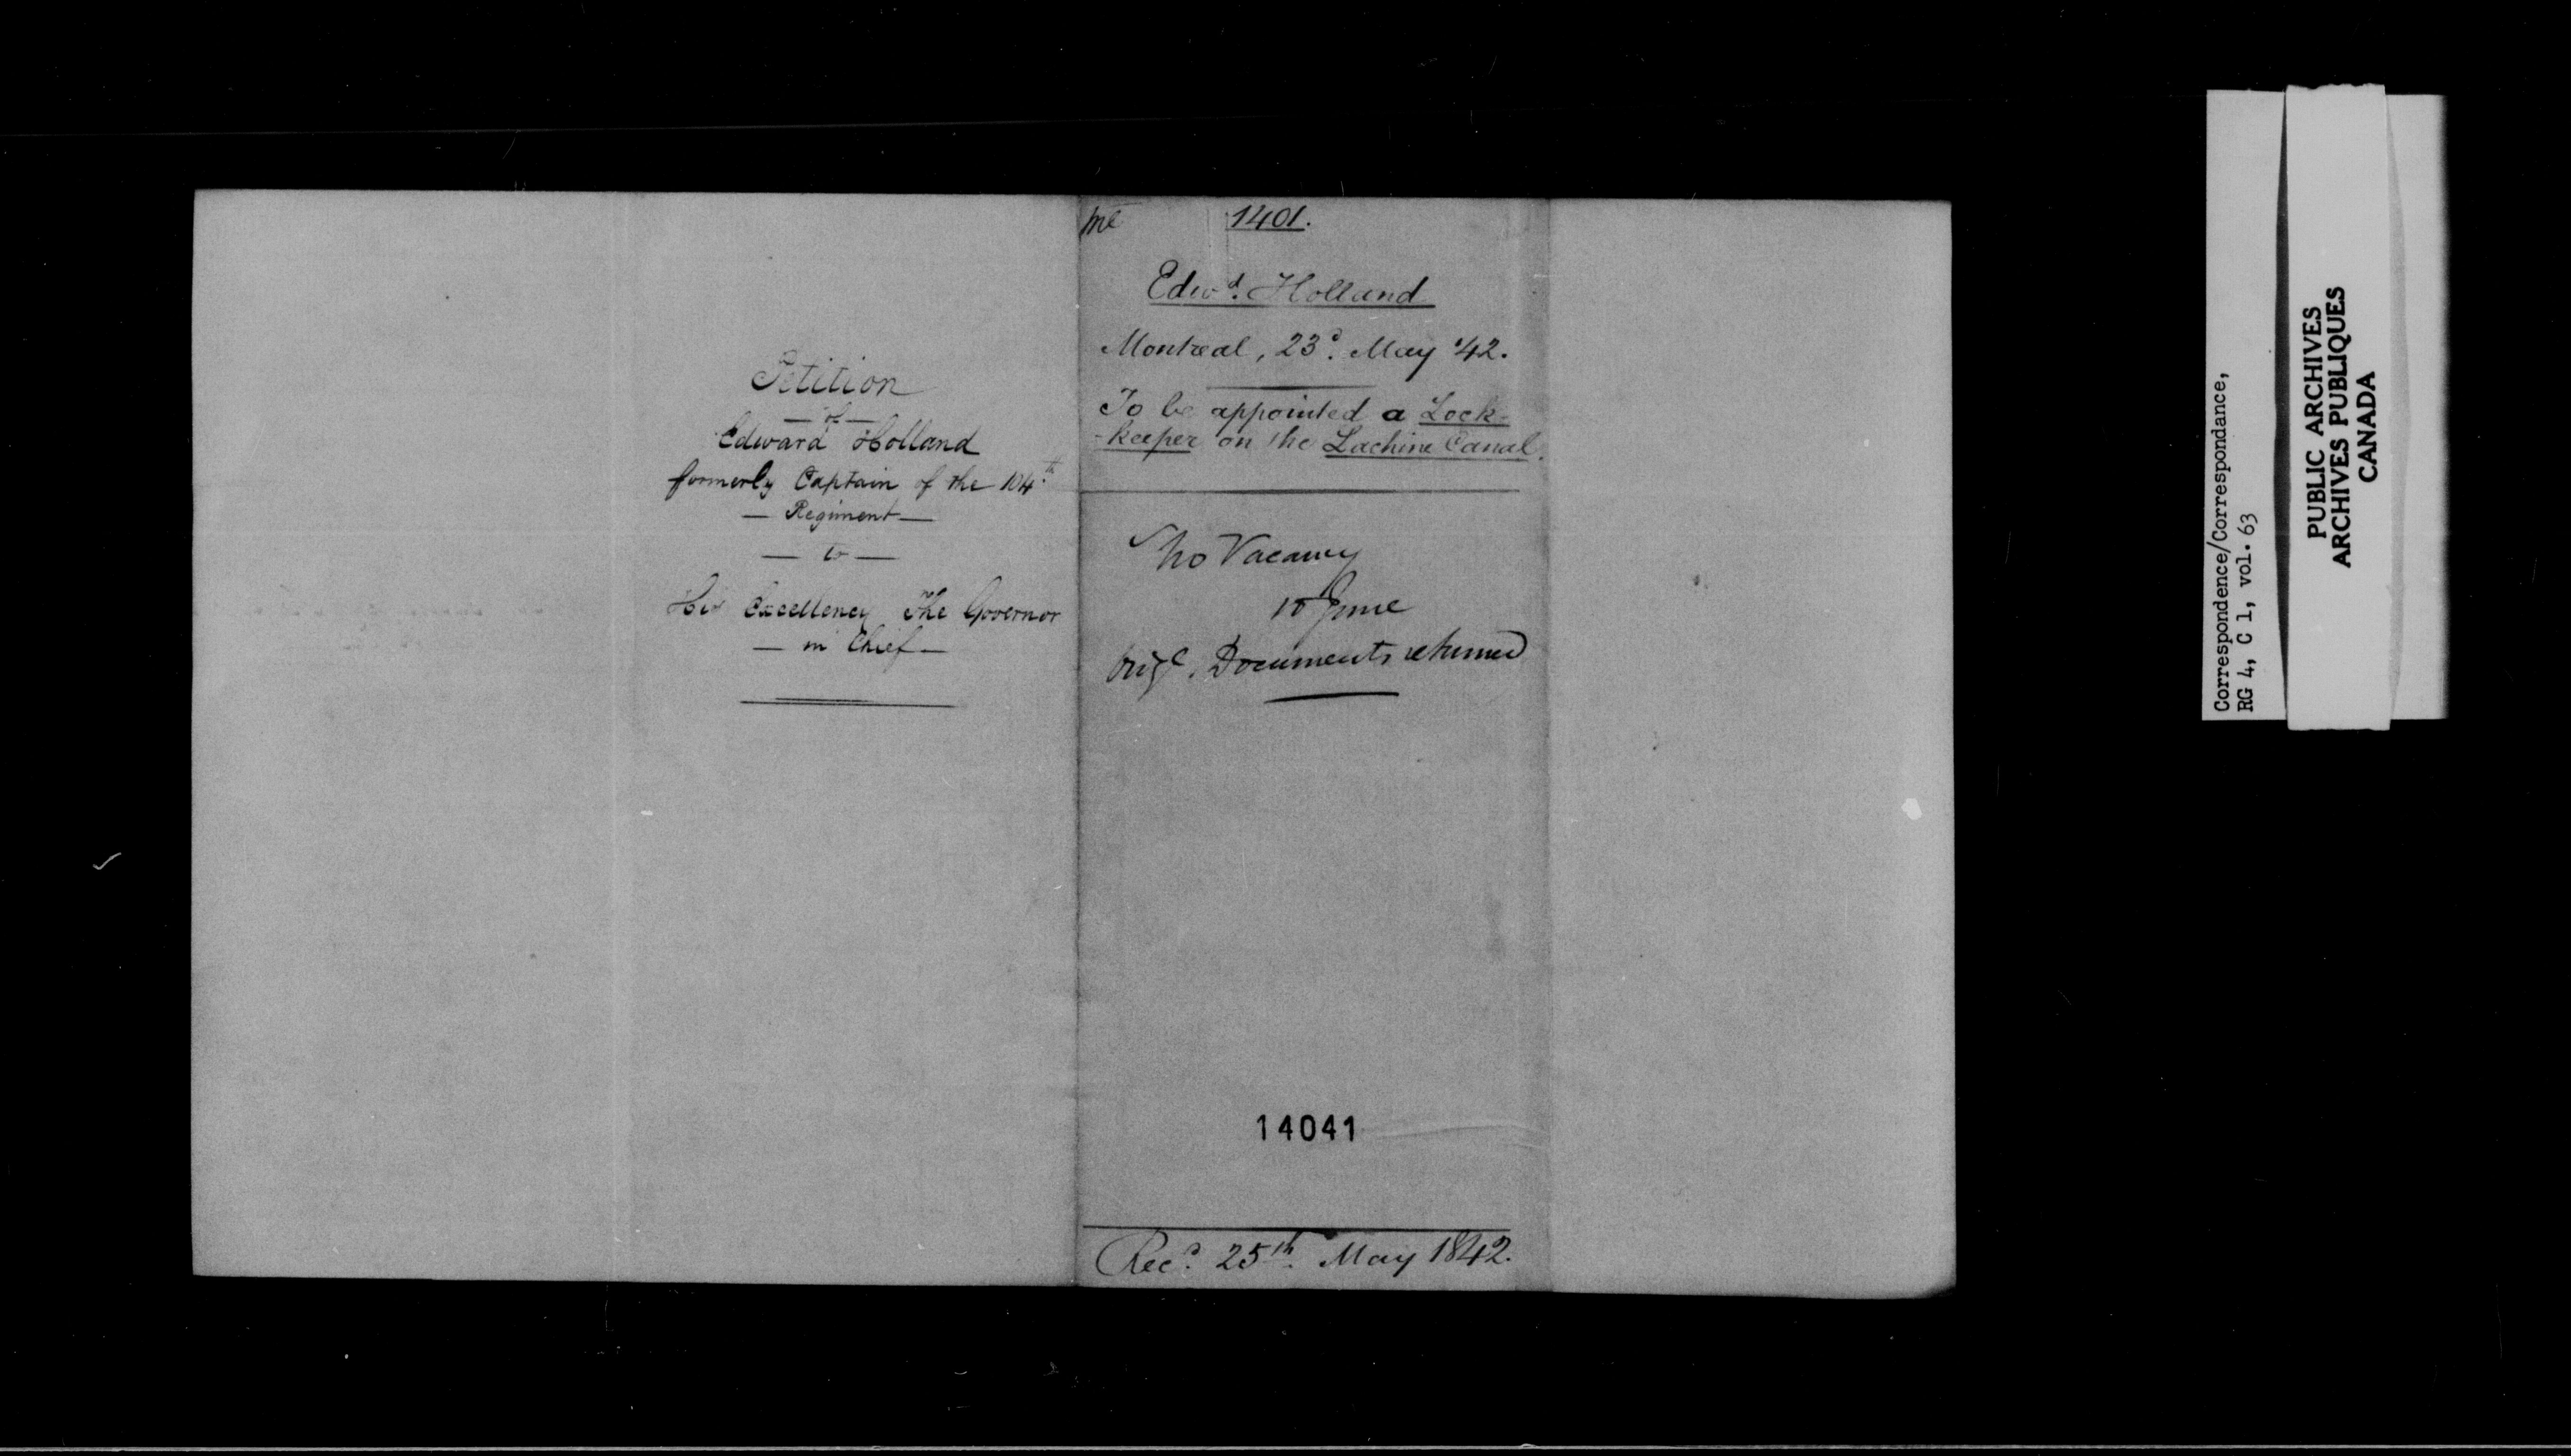 Petition
— of —
Edward Holland
formerly Captain of the 104th
— Regiment —
— to —
His Excellency The Governor
— in Chief —
1401.
Edwd. Holland
Montreal, 23d. May '42.
To be appointed a Lock-
-keeper on the Lachine Canal.
No Vacancy
10 June
Origl. Documents returned
14041
Recd. 25th. May 1842.
Correspondence/Correspondance,
RG 4, C 1, vol. 63
PUBLIC ARCHIVES
ARCHIVES PUBLIQUES
CANADA